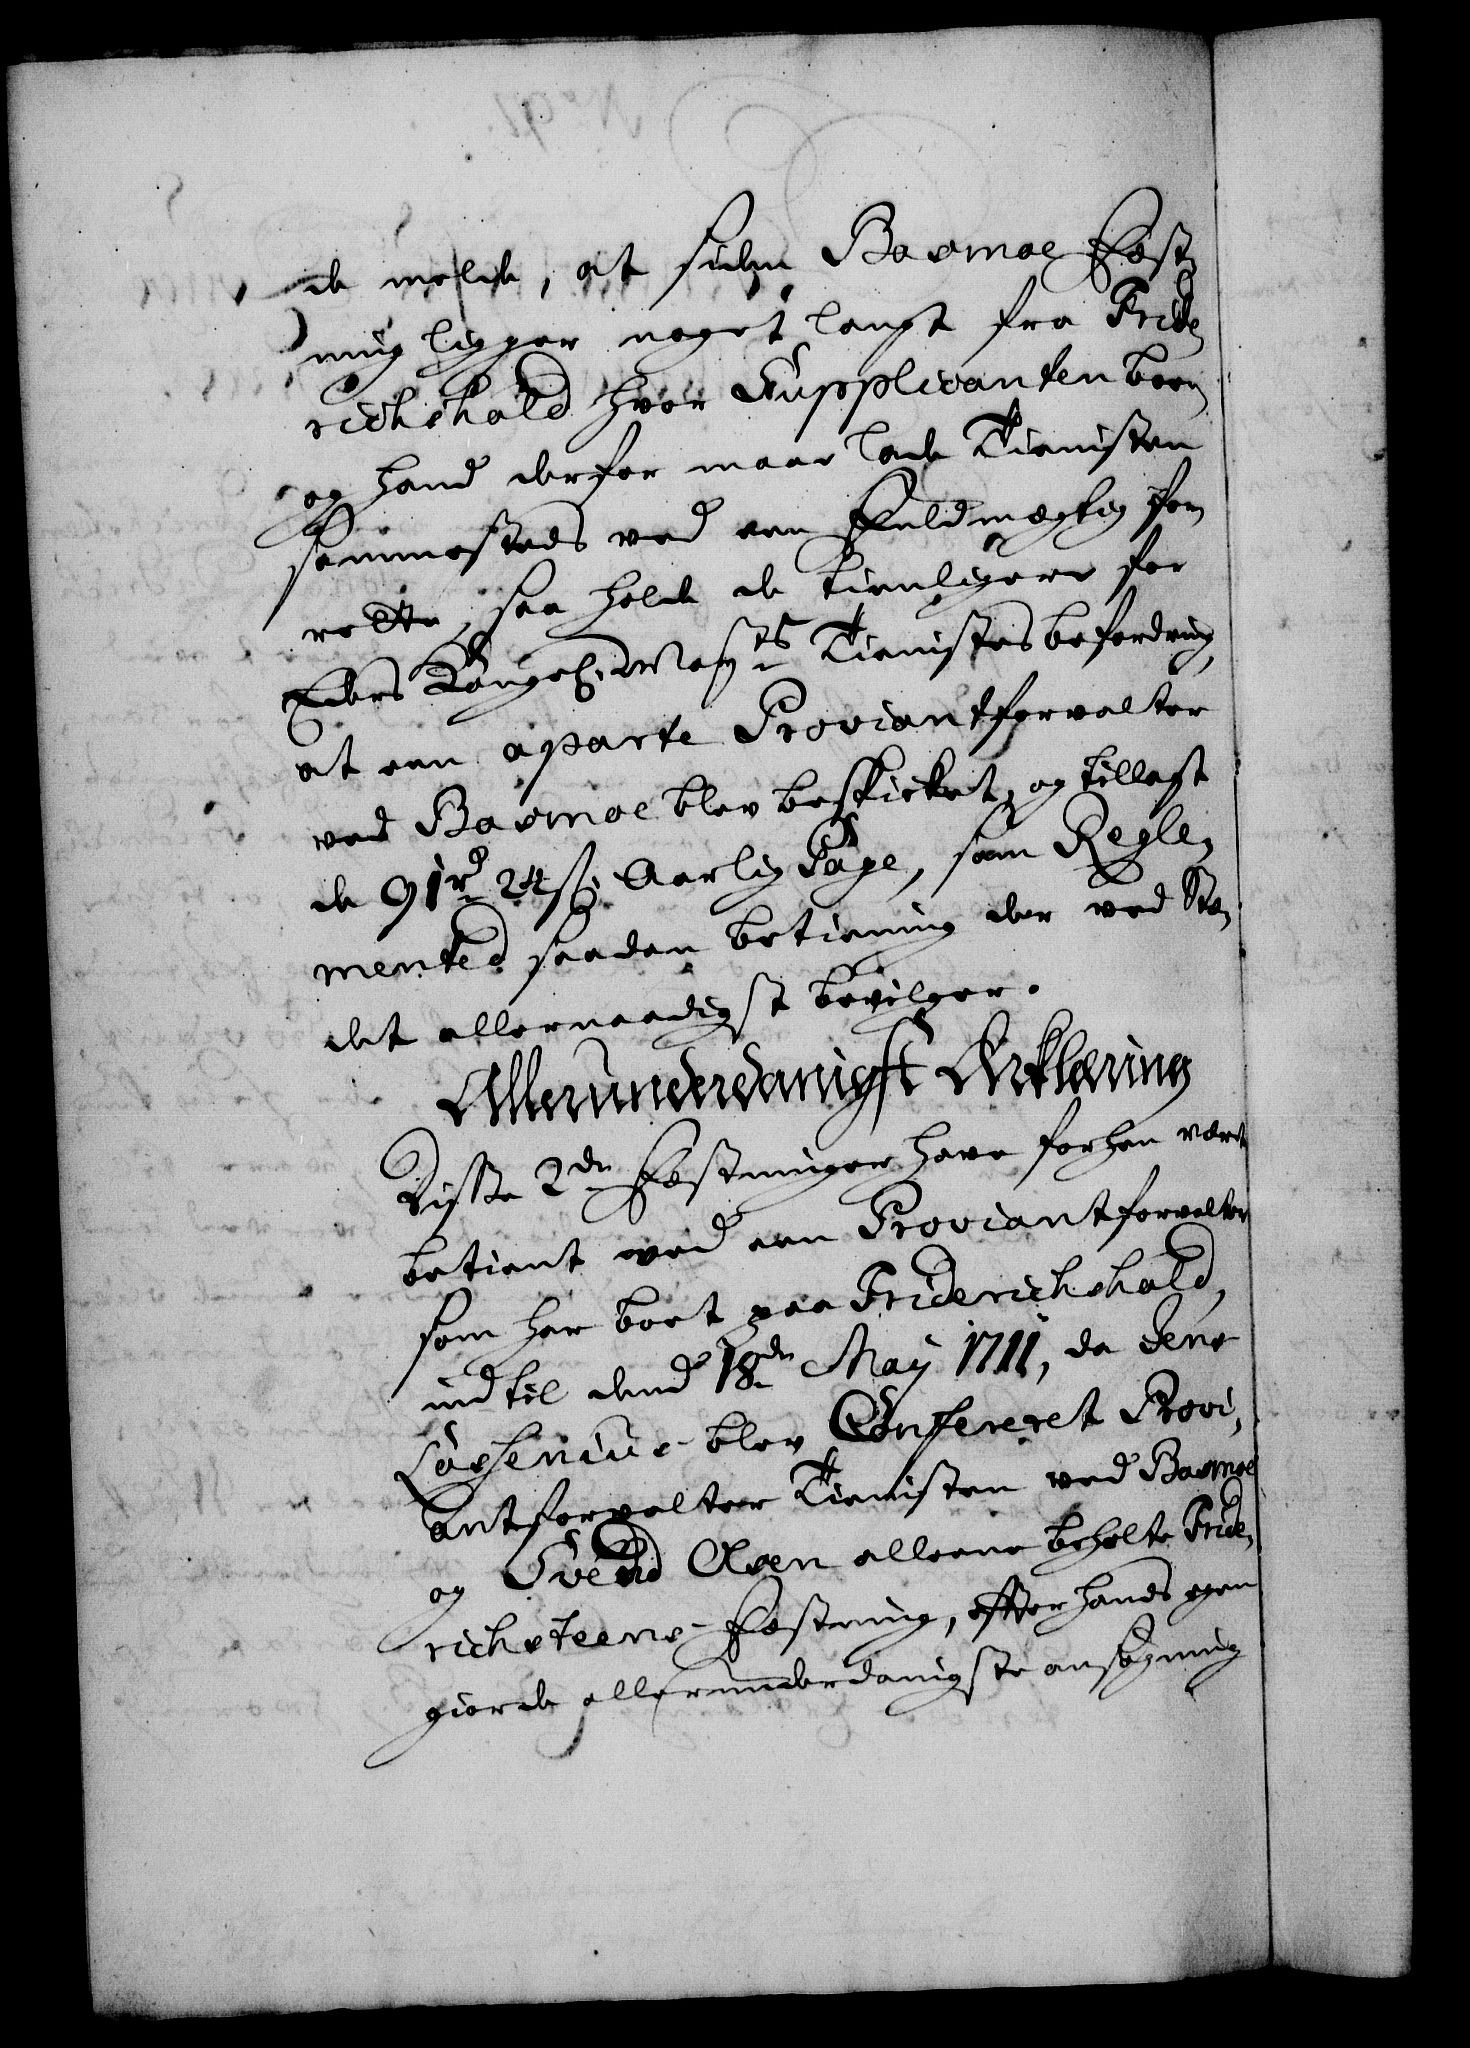 de melde, at siden Basmoe Fæst,
ning ligger noget langt fra Fride,
richshald hvor Supplicanten boer
og hand derfor maae lade Tienisten
sammesteds ved een Fuldmægtig for,
rette, saa holde de tienligere for
Eders Kongel. Mayts Tienistes befordring,
at een aparte Proviantforvalter
ved Basmoe blev beskicket, og tillagt
de 91 rd 24 ß. Aarlig Gage, som Regle,
mented saadan betiening der ved Ste,
det allernaadigst bevilger.
Allerunderdanigst Erklæring
Disse 2de Fæstninger have forhen vært
betient ved een Proviantforvalter
som har boet paa Friderichshald,
indtil dend 18de Maij 1711, da Jens
blev Confereret Provi,
antforvalter Tienisten ved Basmoe
og Svend Olsen alleene beholte Fride,
richsteens Fæstning, efter hands egen
giorde allerunderdanigste ansøgning